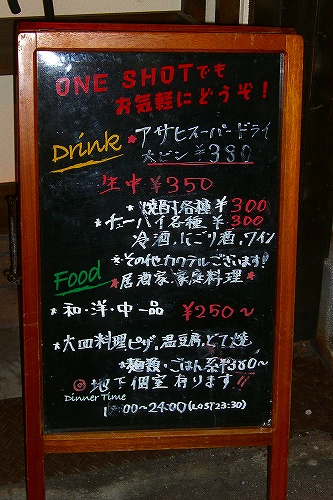 ONE SHOTでも
お気軽にどうぞ！
Drink
★アサヒスーパードライ
大ビン ¥380
生中 ¥350
★焼酎各種 ¥300
★チューハイ各種 ¥300
冷酒.にごり酒.ワイン
★その他カクテルございます!!
Food
★居酒家.家庭料理★
★和・洋・中一品 ¥250～
★大皿料理ピザ,温豆腐,どて焼
★麺類・ごはん系¥380～
◎地下個室有ります!!
Dinner Time
:00～24:00(LOST23:30)